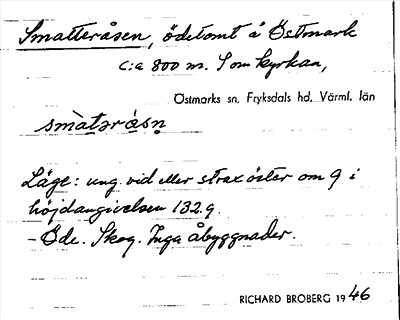 Smatteråsen, ödetomt å Östmark
c:a 800 m. S om kyrkan,
Östmarks sn, Fryksdals hd, Värml. län
smàtərå̀sn̥
Läge: ung. vid eller strax öster om 9 i
höjdangivelsen 132.9.
- Öde. Skog. Inga åbyggnader.
RICHARD BROBERG 1946